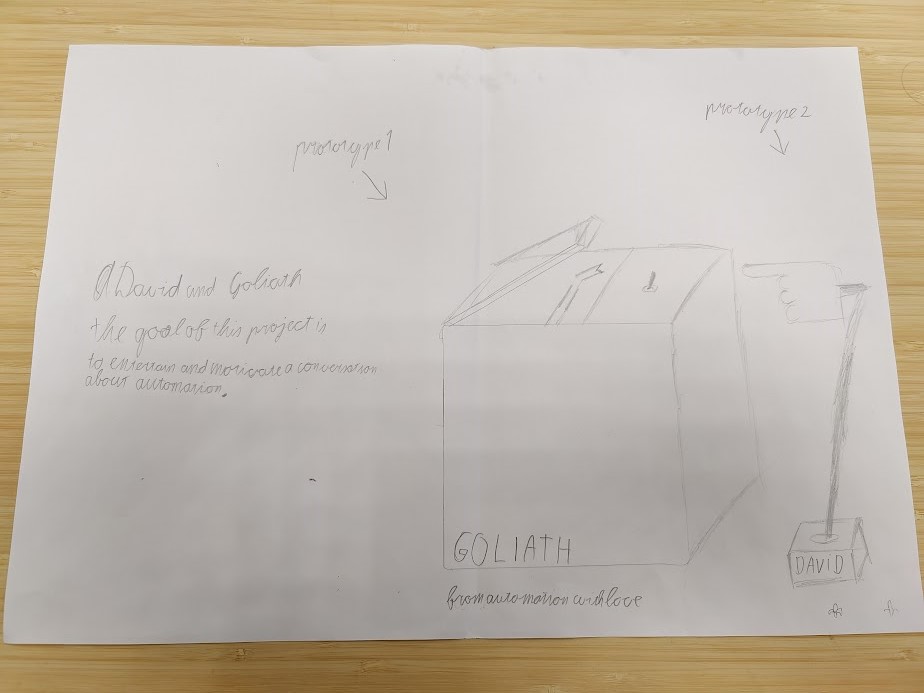 prototype 1
prototype 2
David and Goliath
the goal of this project is
to entertain and motivate a conversation
about automation.
GOLIATH
DAVID
from automation with love